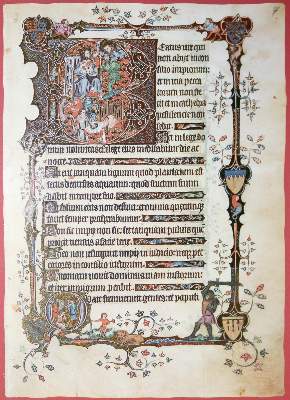 Beatus vir qui
non abijt in con
silio impiorum:
et in via pecca
torum non ste
tit et in cathedra
pestilencie non
sedit
Set in lege do
mini voluntas eius
nocte
Et erit tanquam lignum quod plantatum est
secus decursus aquarum: quod fructum suum
dabit in tempore suo
Et folium eius non defluet: omnia quecumque
faciet semper prosperabuntur
Non sic impij non sic: set tanquam puluis quem
proicit ventus a facie terre
Ideo non resurgunt impij in iudicio: neque pec
catores in consilio iustorum
nouit dominus viam iustorum:
et iter impiorum peribit
Quare fremuerunt gentes: et populi